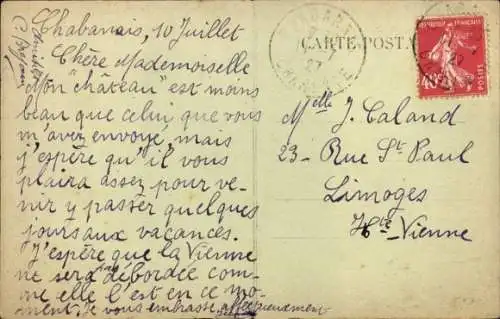 Chabanais, 10 Juillet
Chère Mademoiselle
Mon "château" est moins
beau que celui que vous
m'avez envoyé, mais
j'espère qu'il vous
plaira assez pour ve-
nir y passer quelques
jours aux vacances.
J'espère que la Vienne
ne sera débordée com-
me elle l'est en ce mo-
ment. Je vous embrasse affectueusement
Amitiés
CARTE POST
Melle J. Caland
23 - Rue St Paul
Limoges
Hte Vienne
POSTES